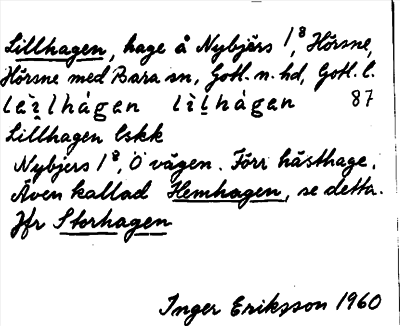 Lillhagen, hage å Nybjärs 1⁸, Hörsne,
Hörsne med Bara sn, Gotl. n. hd, Gotl. l.
87
Lillhagen Eskk
Nybjers 1⁸, Ö vägen. Förr hästhage.
Även kallad Hemhagen, se detta.
Jfr Storhagen
Inger Eriksson 1960